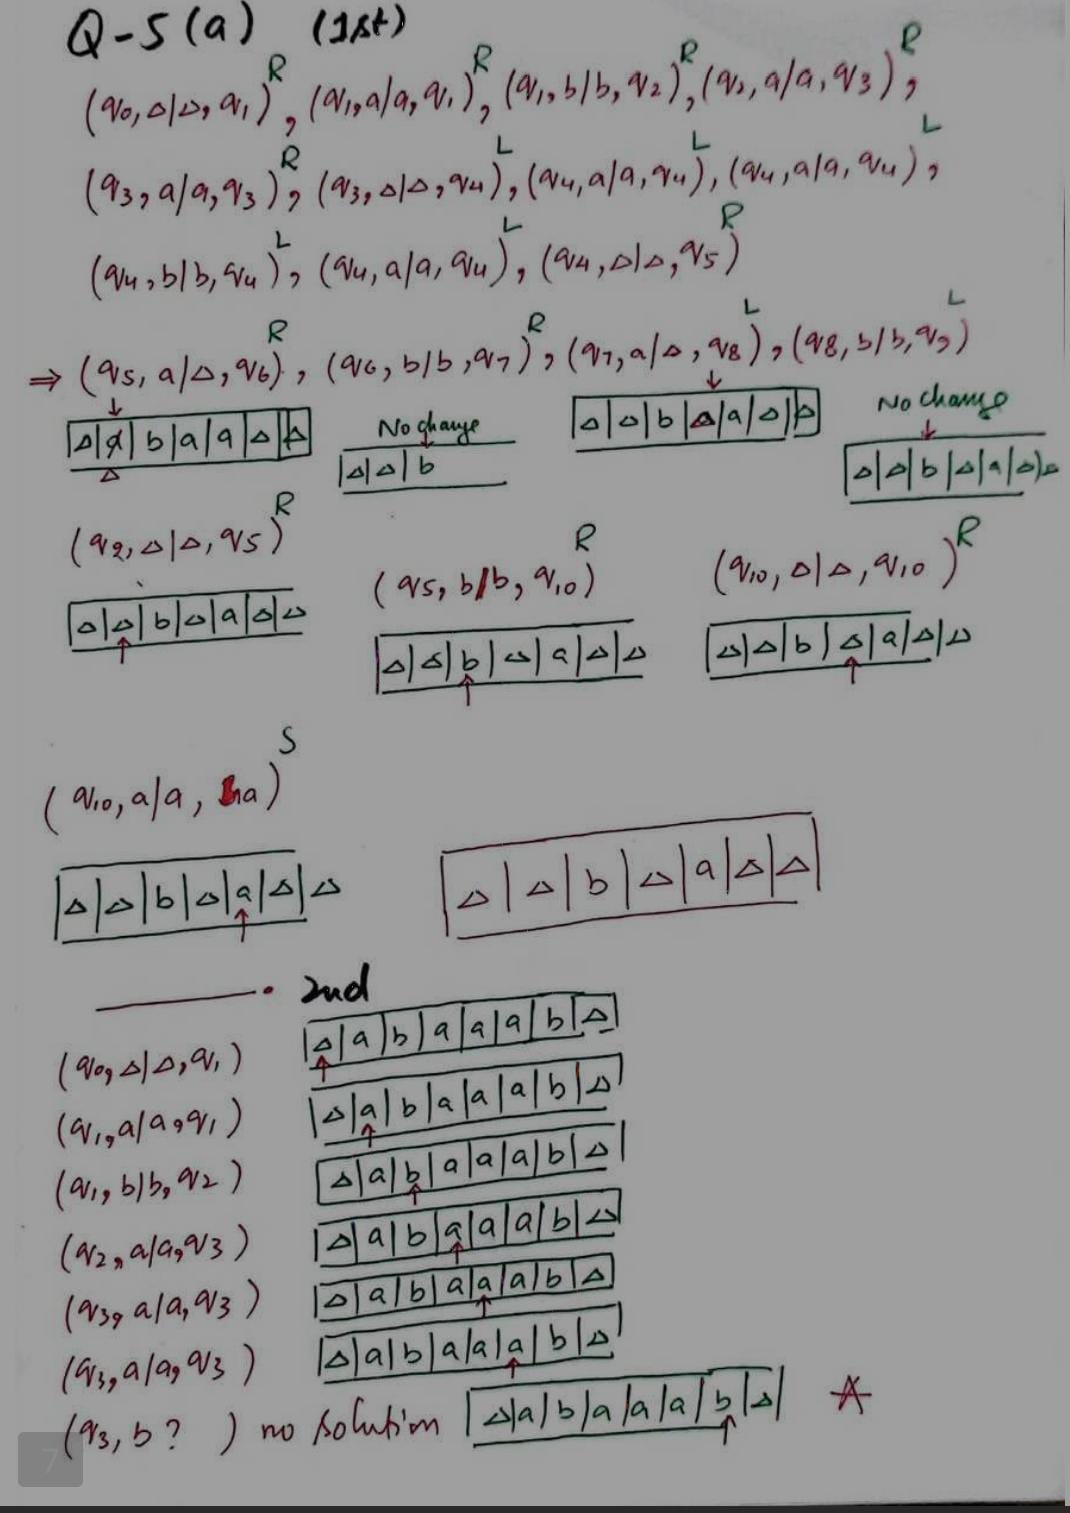 Q-5(a) (1st)
(q0, Δ/Δ, q1)R, (q1, a/a, q1)R, (q1, b/b, q2)R, (q2, a/a, q3)R,
(q3, a/a, q3)R, (q3, Δ/Δ, q4)L, (q4, a/a, q4)L, (q4, a/a, q4)L,
(q4, b/b, q4)L, (q4, a/a, q4)L, (q4, Δ/Δ, q5)R
⇒ (q5, a/Δ, q6)R, (q6, b/b, q7)R, (q7, a/Δ, q8)L, (q8, b/b, q9)L
↓ ↓ No change
|Δ|a|b|a|a|Δ|Δ| No change |Δ|Δ|b|Δ|a|Δ|Δ| ↓
Δ |Δ|Δ|b |Δ|Δ|b|Δ|a|Δ|Δ
(q9, Δ/Δ, q5)R
(q5, b/b, q10)R (q10, Δ/Δ, q10)R
|Δ|Δ|b|Δ|a|Δ|Δ
↑ |Δ|Δ|b|Δ|a|Δ|Δ |Δ|Δ|b|Δ|a|Δ|Δ
↑ ↑
(q10, a/a, ha)S
|Δ|Δ|b|Δ|a|Δ|Δ |Δ|Δ|b|Δ|a|Δ|Δ|
↑
2nd
(q0, Δ/Δ, q1) |Δ|a|b|a|a|a|b|Δ|
(q1, a/a, q1) |Δ|a|b|a|a|a|b|Δ|
(q1, b/b, q2) |Δ|a|b|a|a|a|b|Δ|
(q2, a/a, q3) |Δ|a|b|a|a|a|b|Δ|
(q3, a/a, q3) |Δ|a|b|a|a|a|b|Δ|
(q3, a/a, q3) |Δ|a|b|a|a|a|b|Δ|
(q3, b? ) no solution |Δ|a|b|a|a|a|b|Δ|
7